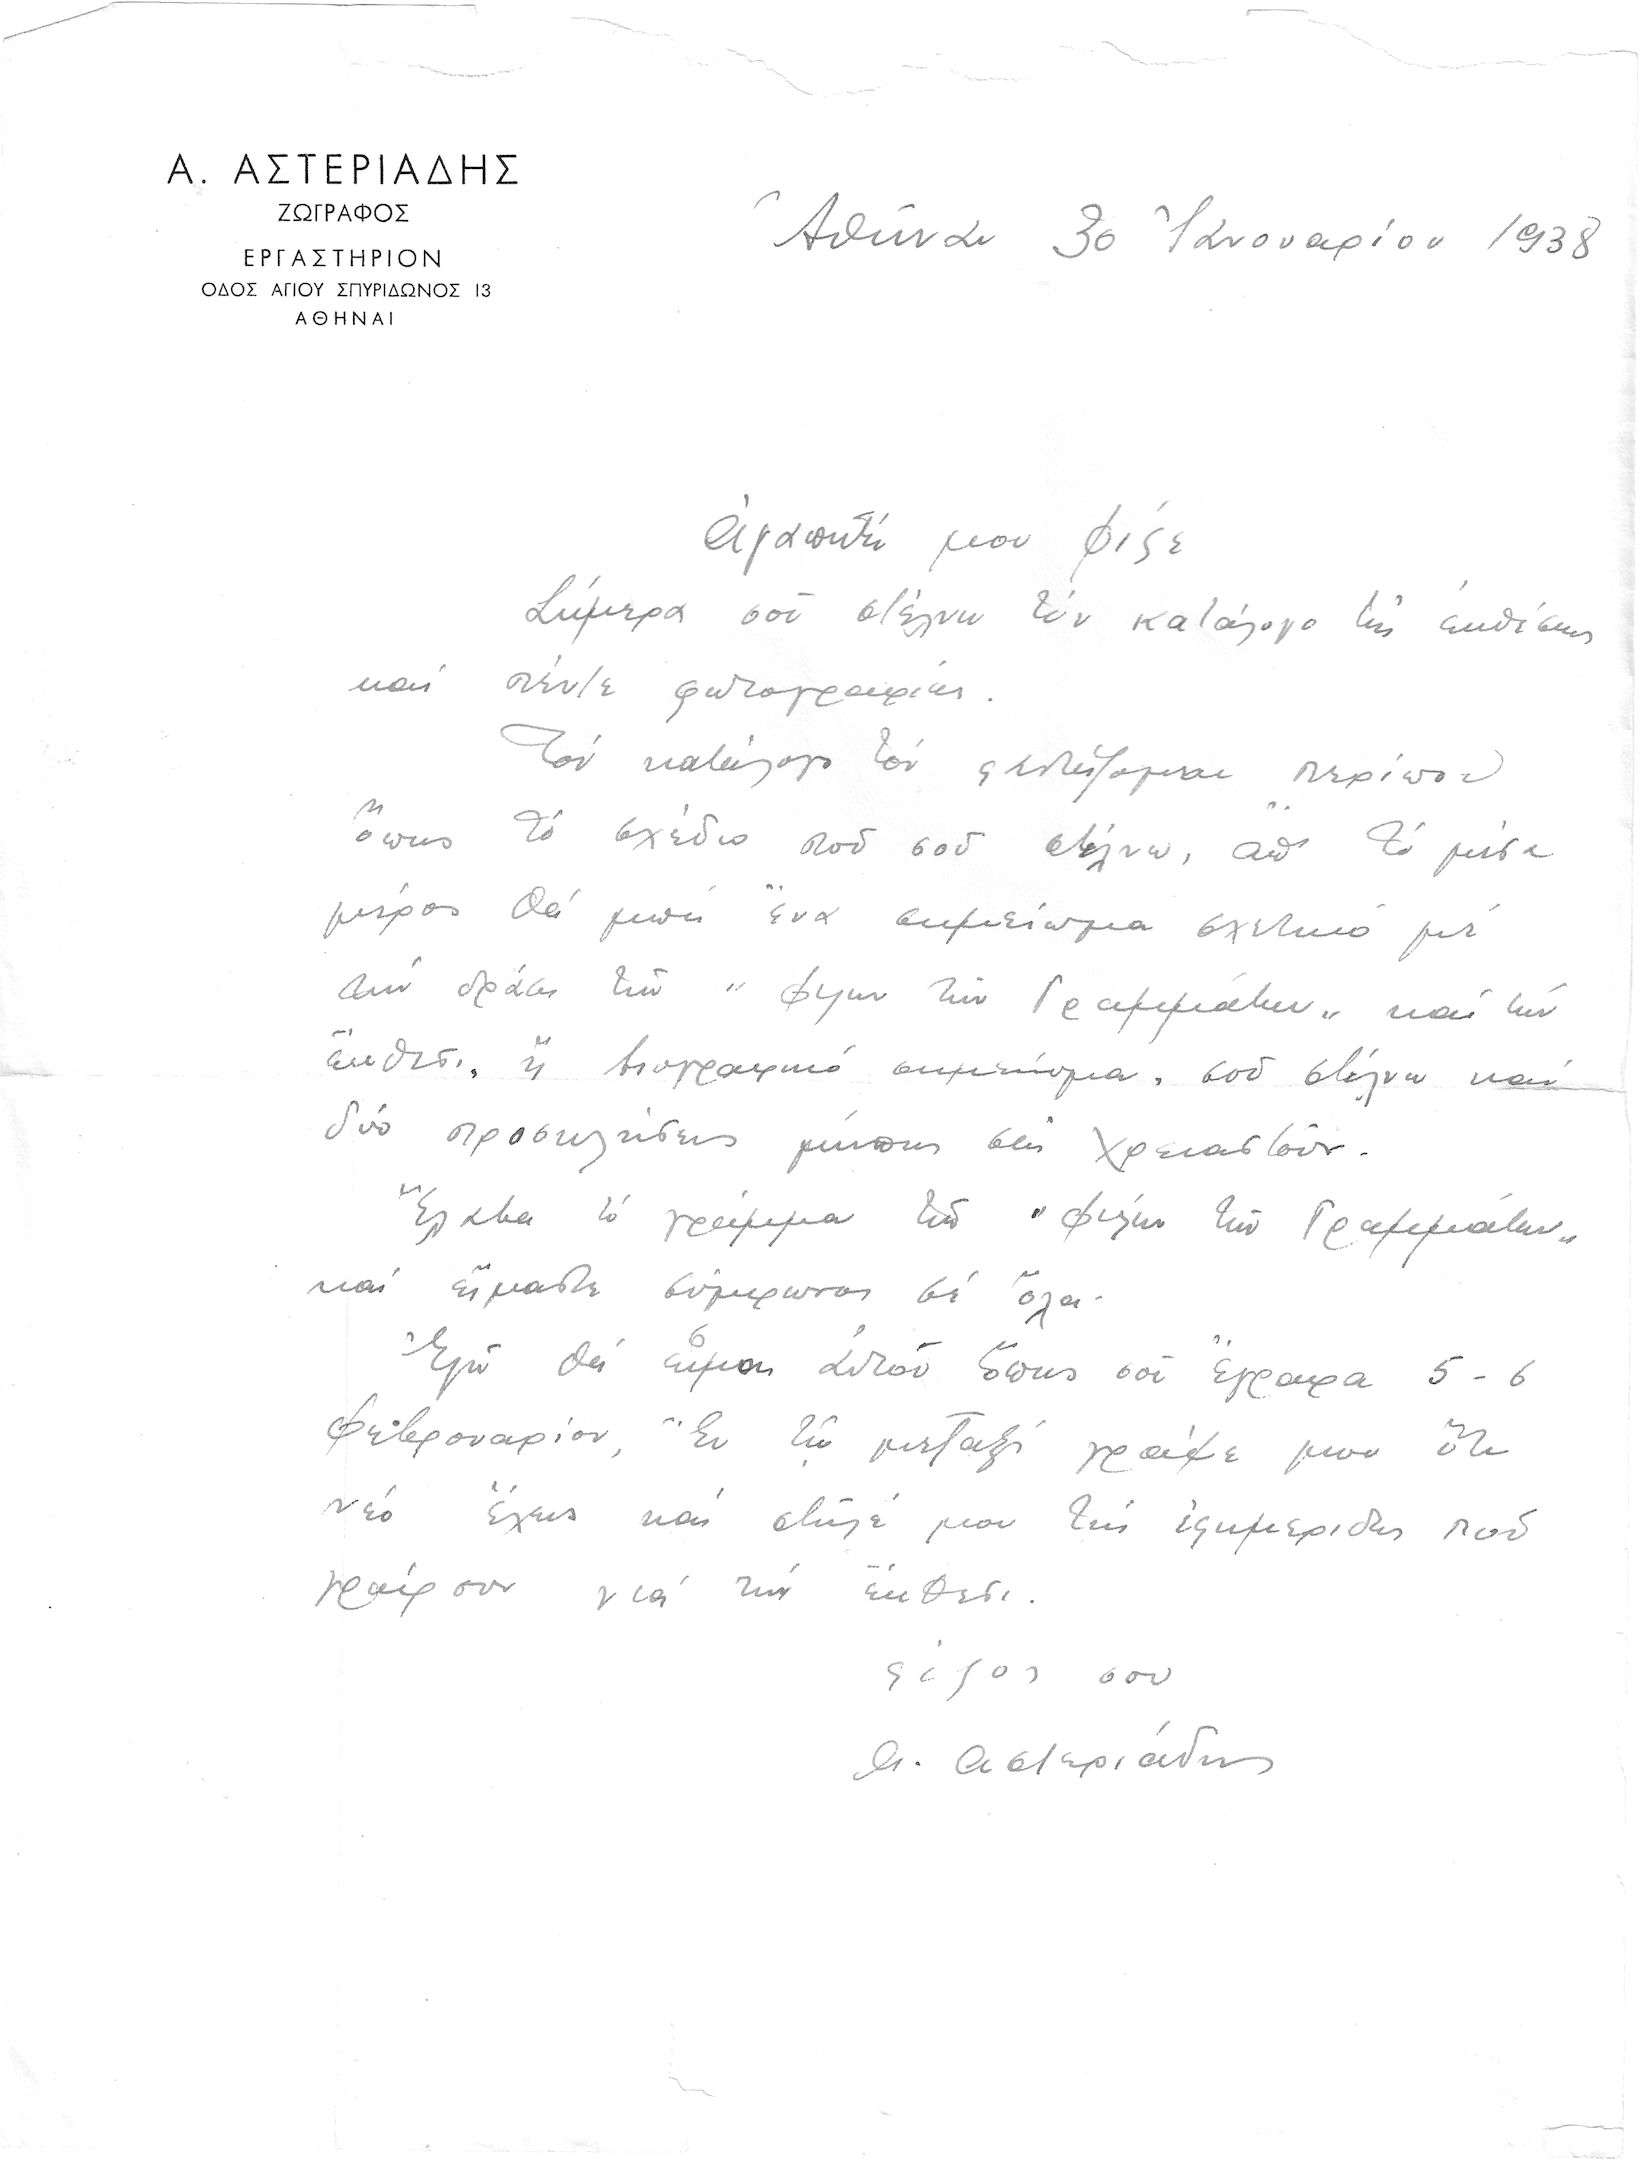 Α. ΑΣΤΕΡΙΑΔΗΣ
ΖΩΓΡΑΦΟΣ
ΕΡΓΑΣΤΗΡΙΟΝ
ΟΔΟΣ ΑΓΙΟΥ ΣΠΥΡΙΔΩΝΟΣ 13
ΑΘΗΝΑΙ
Ἀθῆναι 30 Ἰανουαρίου 1938
Ἀγαπητέ μου φίλε
Σήμερα σοῦ στέλνω τόν κατάλογο τῆς ἐκθέσεως
καί πέντε φωτογραφίες.
Τόν κατάλογο τόν φαντάζομαι περίπου
ὅπως τό σχέδιο ποῦ σοῦ στέλνω, ἀπ' τό μέσα
μέρος θά μπεῖ ἕνα σημείωμα σχετικό μέ
τήν δράσι τῶν " Φίλων τῶν Γραμμάτων „ καί τήν
ἔκθεσι, ἤ βιογραφικό σημείωμα, σοῦ στέλνω καί
δύο προσκλήσεις μήπως σᾶς χρειαστοῦν.
Ἔλαβα τό γράμμα τῶν " Φίλων τῶν Γραμμάτων „
καί εἴμαστε σύμφωνοι σέ ὅλα.
Ἐγώ θά εἶμαι αὐτοῦ ὅπως σοῦ ἔγραψα 5 - 6
Φεβρουαρίου, Ἐν τῷ μεταξύ γράψε μου ὅτι
νεό ἔχεις καί στεῖλέ μου τίς ἐφημερίδες ποῦ
γράφουν γιά τήν ἔκθεσι.
φίλος σου
Α. Αστεριάδης